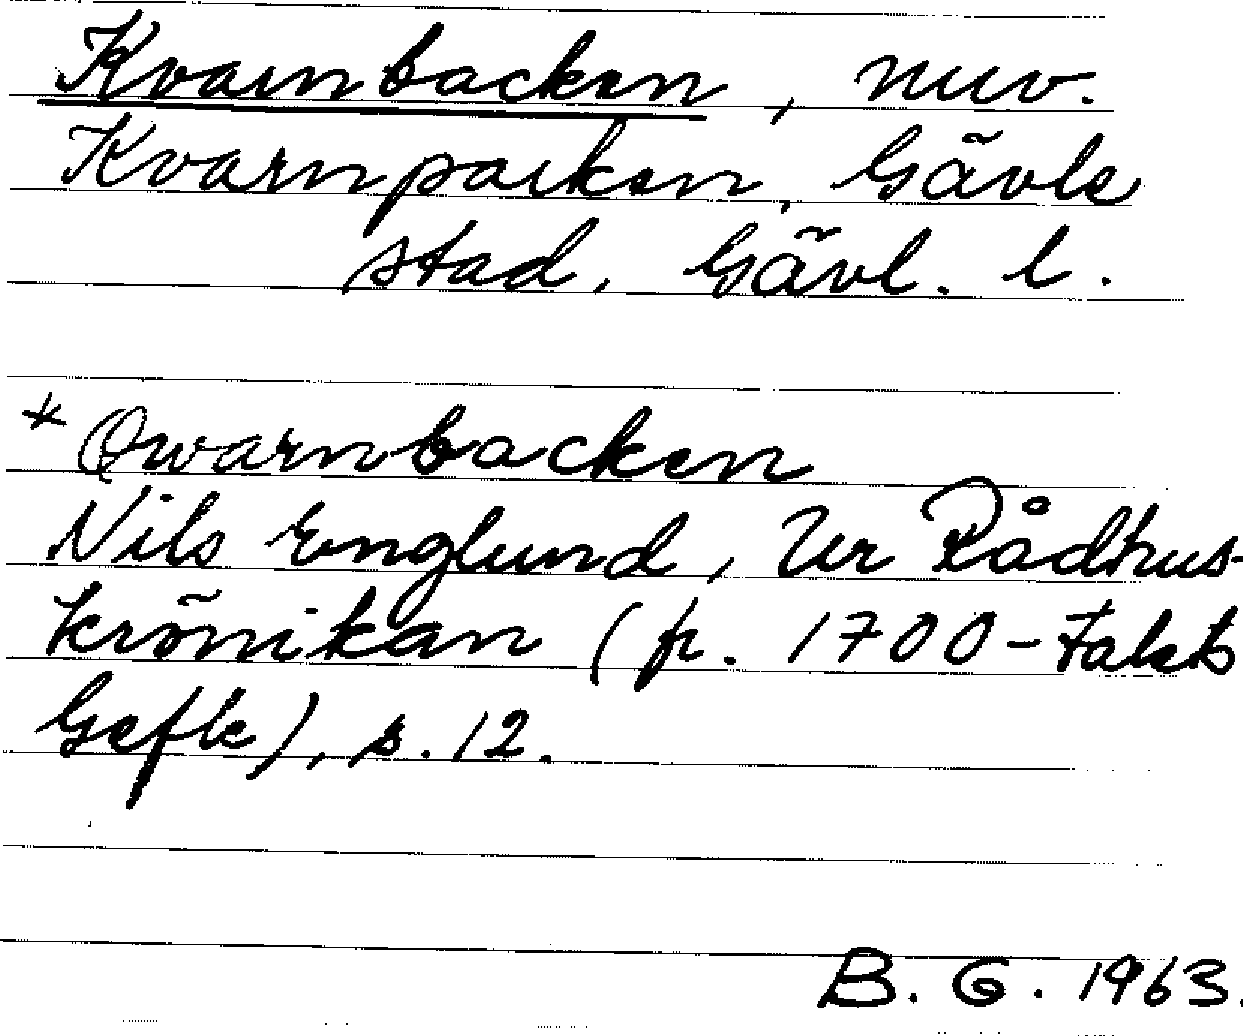 Kvarnbacken, nuv.
Kvarnparken, Gävle
stad, Gävl. l.
* Qwarnbacken
Nils Englund, Ur Rådhus-
krönikan (fr. 1700-talets
Gefle), s. 12.
B. G. 1963.